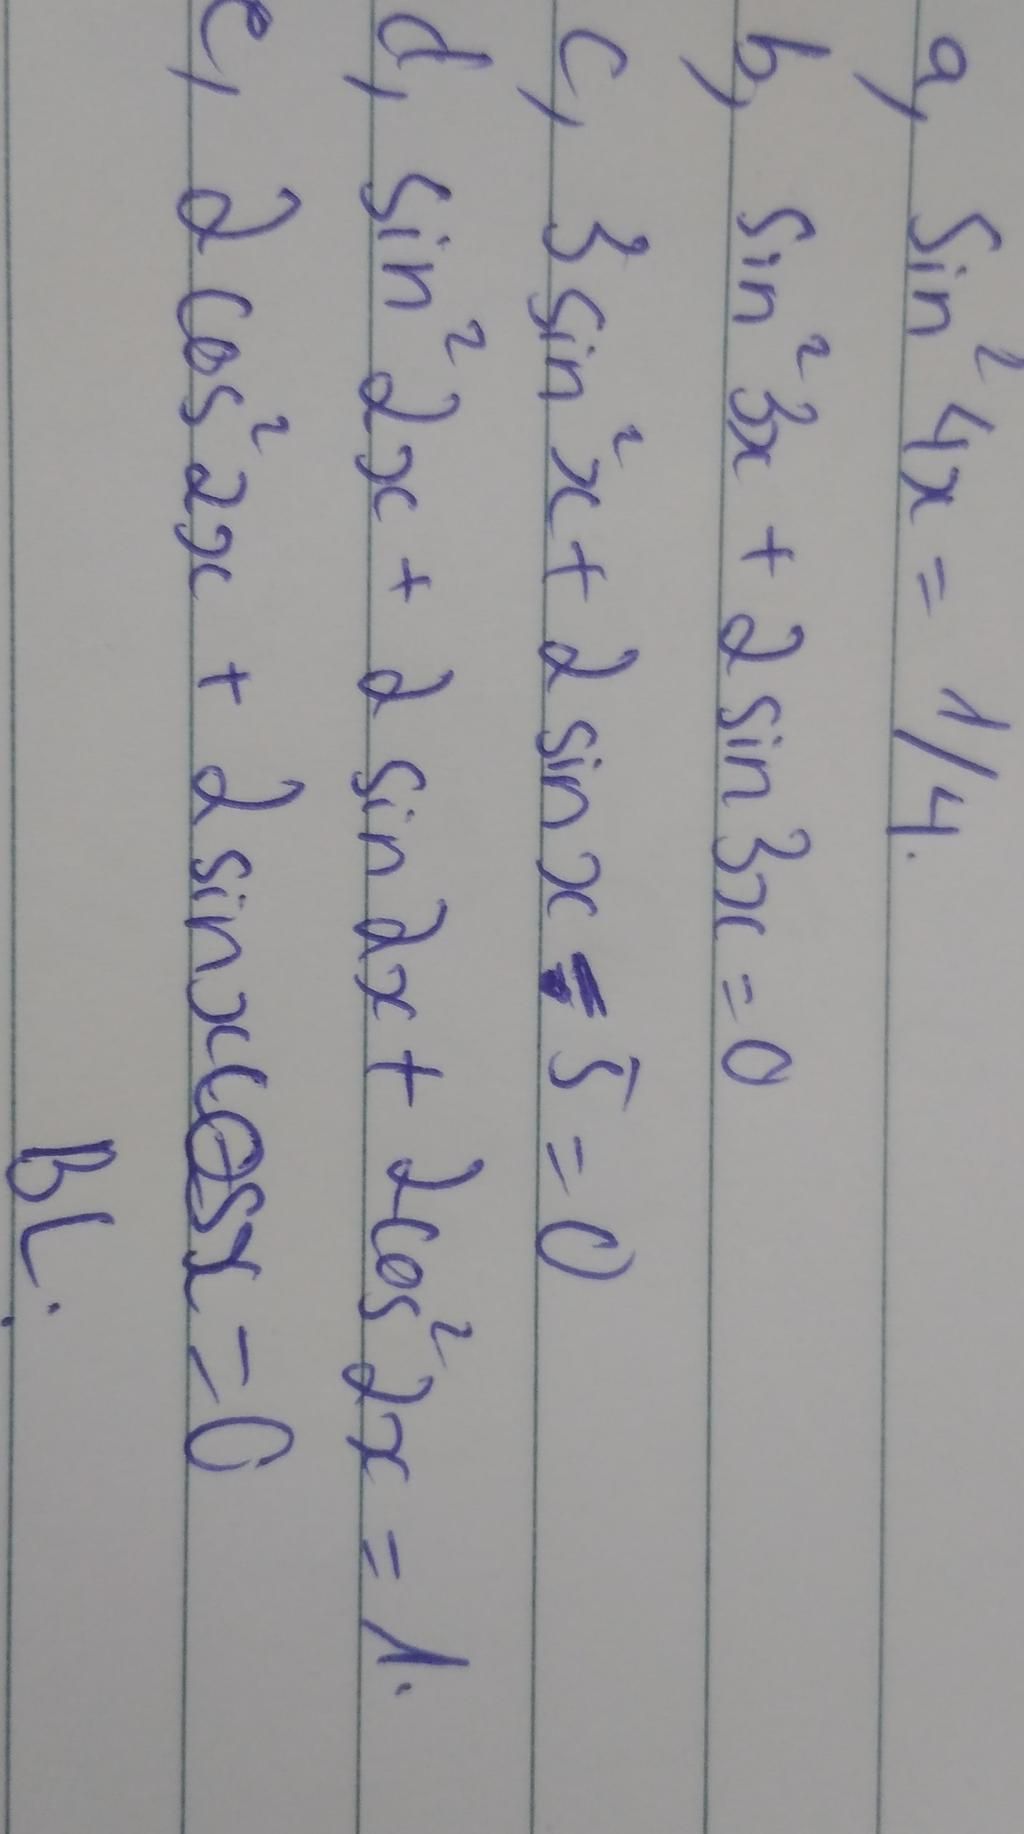 a, sin² 4x = 1/4.
b, sin² 3x + 2 sin 3x = 0
c, 3 sin² x + 2 sin x - 5 = 0
d, sin² 2x + 2 sin 2x + 2cos² 2x = 1.
e, 2 cos² 2x + 2 sinx cosx = 0
BL.